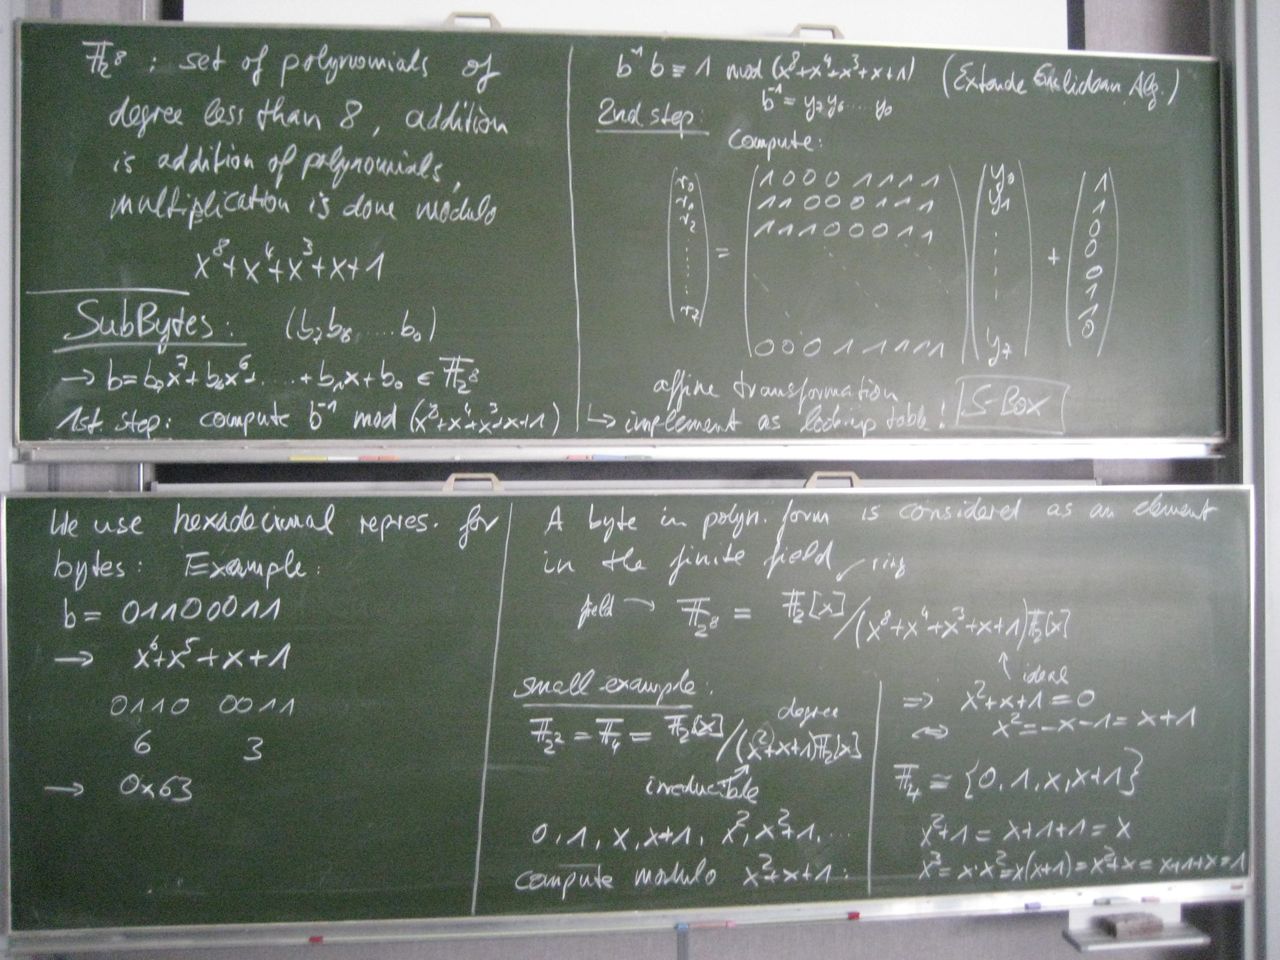 𝔽₂⁸ : set of polynomials of
degree less than 8, addition
is addition of polynomials,
multiplication is done modulo
x⁸+x⁴+x³+x+1
SubBytes: (b₇b₆ .... b₀)
→ b=b₇x⁷+b₆x⁶+....+b₁x+b₀ ∈ 𝔽₂⁸
1st. step: compute b⁻¹ mod (x⁸+x⁴+x³+x+1)
b⁻¹ b ≡ 1 mod (x⁸+x⁴+x³+x+1) (Extende Euclidean Alg.)
b⁻¹ = y₇y₆ ... y₀
2nd step:
Compute:
r₀ 1 0 0 0 1 1 1 1 y₀ 1
r₁ 1 1 0 0 0 1 1 1 y₁ 1
r₂ 1 1 1 0 0 0 1 1 0
= + 0
0
1
r₇ 1
0 0 0 1 1 1 1 1 y₇ 0
affine transformation
↳ implement as look-up table! S-Box
We use hexadecimal repres. for
bytes: Example:
b = 01100011
→ x⁶+x⁵+x+1
0110 0011
6 3
→ 0x63
A byte in polyn. form is considered as an element
in the finite field
ring
field → 𝔽₂⁸ = 𝔽₂[x]/(x⁸+x⁴+x³+x+1)𝔽₂[x]
ideal
small example:
degree
𝔽₂² = 𝔽₄ = 𝔽₂[x]/(x²+x+1)𝔽₂[x]
irreducible
0, 1, x, x+1, x², x²+1, ...
compute modulo x²+x+1:
⇒ x²+x+1=0
⇔ x²=-x-1=x+1
𝔽₄ = {0, 1, x, x+1}
x²+1 = x+1+1 = x
x³= x·x²=x(x+1)=x²+x=x+1+x=1